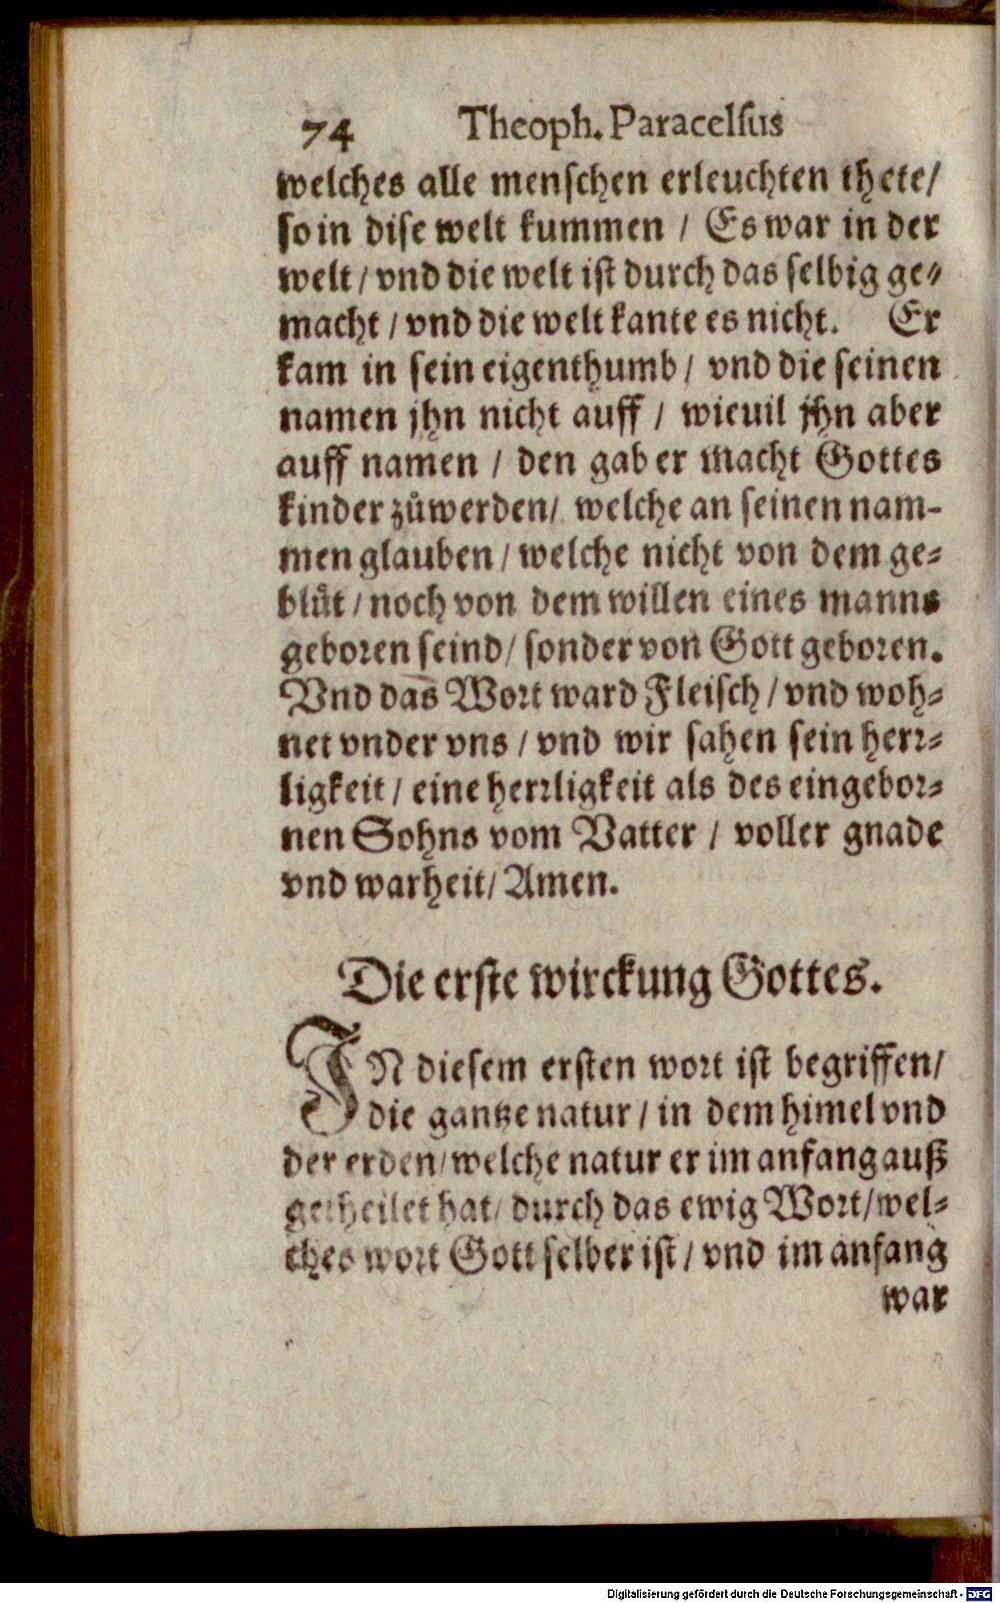 74 Theoph. Paracelſus
welches alle menſchen erleuchten thete/
ſo in diſe welt kummen / Es war in der
welt / vnd die welt iſt durch das ſelbig ge⸗
macht / vnd die welt kante es nicht. Er
kam in ſein eigenthumb / vnd die ſeinen
namen jhn nicht auff / wieuil jhn aber
auff namen / den gab er macht Gottes
kinder zůwerden / welche an ſeinen nam-
men glauben / welche nicht von dem ge⸗
blůt / noch von dem willen eines manns
geboren ſeind / ſonder von Gott geboren.
Vnd das Wort ward Fleiſch / vnd woh⸗
net vnder vns / vnd wir ſahen ſein herr⸗
ligkeit / eine herrligkeit als des eingebor⸗
nen Sohns vom Vatter / voller gnade
vnd warheit / Amen.
Die erſte wirckung Gottes.
IN dieſem erſten wort iſt begriffen/
die gantze natur / in dem himel vnd
der erden / welche natur er im anfang auß
getheilet hat / durch das ewig Wort / wel⸗
ches wort Gott ſelber iſt / vnd im anfang
war
Digitalisierung gefördert durch die Deutsche Forschungsgemeinschaft - DFG